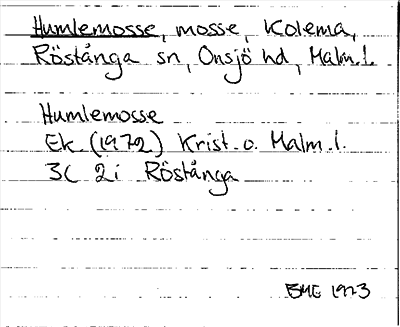 Humlemosse, mosse, Kolema,
Röstånga sn, Onsjö hd, Malm.l.
Humlemosse
Ek. (1972) Krist. o. Malm.l.
3C 2i Röstånga
BME 1973